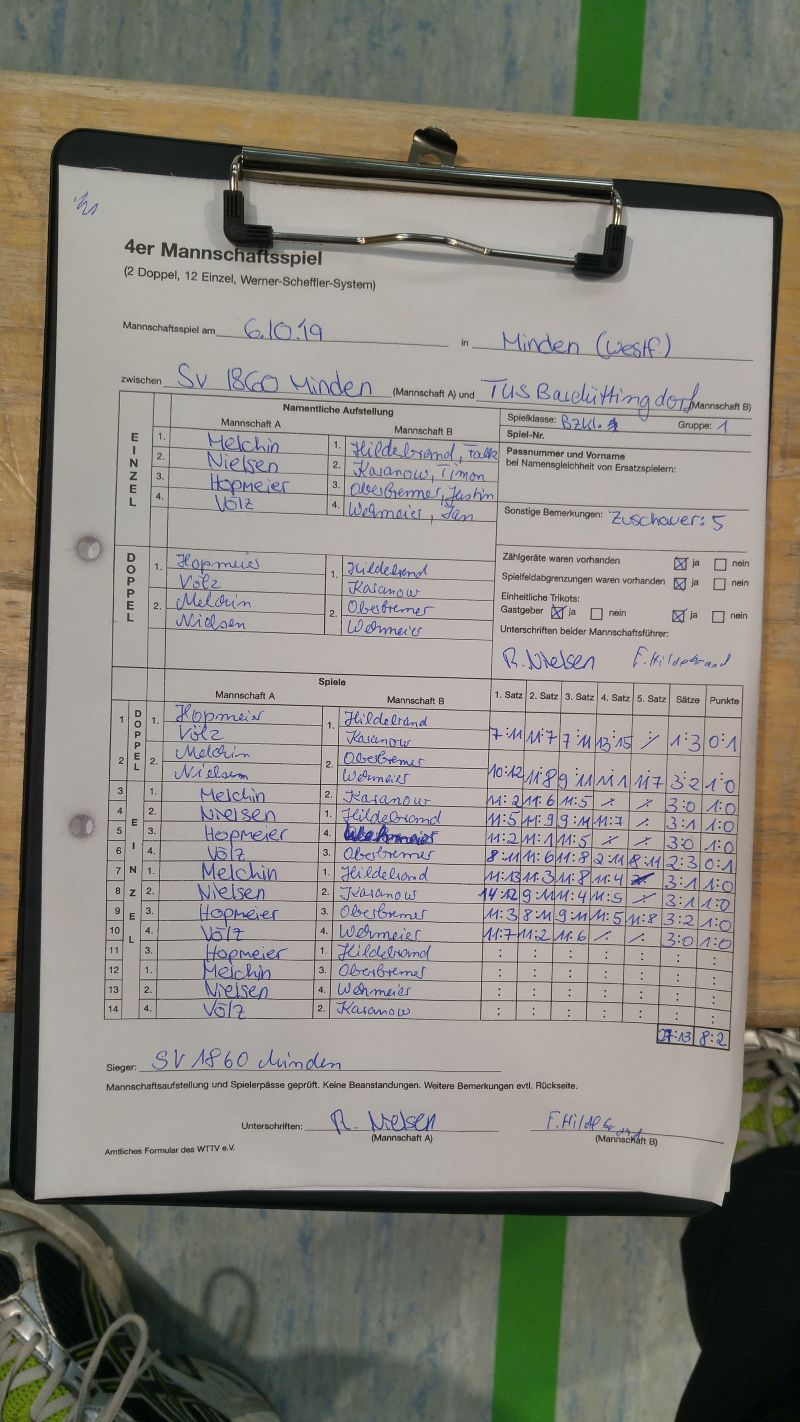 4er Mannschaftsspiel
(2 Doppel, 12 Einzel, Werner-Scheffler-System)
Mannschaftsspiel am 6.10.19 in Minden (Westf.)
zwischen SV 1860 Minden (Mannschaft A) und TUS Bardüttingdorf (Mannschaft B)
Namentliche Aufstellung
Mannschaft A Mannschaft B
EINZEL
1. Melchin 1. Hildebrand, Falk
2. Nielsen 2. Karanow, Timon
3. Hopmeier 3. Oberbremer, Justin
4. Völz 4. Wehmeier, Jan
Spielklasse: Bzkl. Gruppe: 1
Spiel-Nr.
Passnummer und Vorname
bei Namensgleichheit von Ersatzspielern:
Sonstige Bemerkungen: Zuschauer: 5
DOPPEL
1. Hopmeier 1. Hildebrand
Völz Karanow
2. Melchin 2. Oberbremer
Nielsen Wehmeier
Zählgeräte waren vorhanden ja nein
Spielfeldabgrenzungen waren vorhanden ja nein
Einheitliche Trikots:
Gastgeber ja nein ja nein
Unterschriften beider Mannschaftsführer:
R. Nielsen F. Hildebrand
Spiele
Mannschaft A Mannschaft B 1. Satz 2. Satz 3. Satz 4. Satz 5. Satz Sätze Punkte
DOPPEL
1 1. Hopmeier 1. Hildebrand
Völz Karanow 7:11 11:7 7:11 13:15 ⁒ 1:3 0:1
2 2. Melchin 2. Oberbremer
Nielsen Wehmeier 10:12 11:8 9:11 11:1 11:7 3:2 1:0
EINZEL
3 1. Melchin 2. Karanow 11:2 11:6 11:5 ⁒ ⁒ 3:0 1:0
4 2. Nielsen 1. Hildebrand 11:5 11:9 9:11 11:7 ⁒ 3:1 1:0
5 3. Hopmeier 4. 11:2 11:1 11:5 ⁒ ⁒ 3:0 1:0
6 4. Völz 3. Oberbremer 8:11 11:6 11:8 2:11 8:11 2:3 0:1
7 1. Melchin 1. Hildebrand 11:13 11:3 11:8 11:4 3:1 1:0
8 2. Nielsen 2. Karanow 14:12 9:11 11:4 11:5 ⁒ 3:1 1:0
9 3. Hopmeier 3. Oberbremer 11:3 8:11 9:11 11:5 11:8 3:2 1:0
10 4. Völz 4. Wehmeier 11:7 11:2 11:6 ⁒ ⁒ 3:0 1:0
11 3. Hopmeier 1. Hildebrand : : : : : : :
12 1. Melchin 3. Oberbremer : : : : : : :
13 2. Nielsen 4. Wehmeier : : : : : : :
14 4. Völz 2. Karanow : : : : : : :
27:13 8:2
Sieger: SV 1860 Minden
Mannschaftsaufstellung und Spielerpässe geprüft. Keine Beanstandungen. Weitere Bemerkungen evtl. Rückseite.
Unterschriften: R. Nielsen F. Hildebrand
(Mannschaft A) (Mannschaft B)
Amtliches Formular des WTTV e.V.